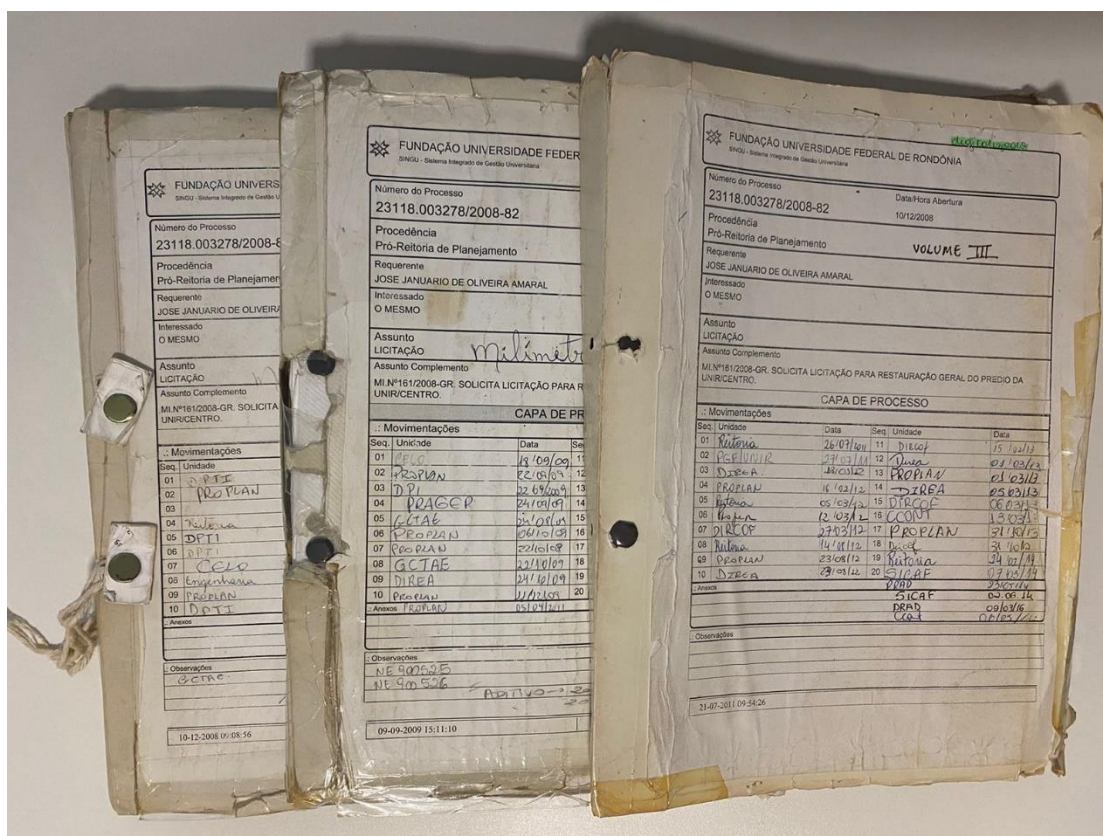 FUNDAÇÃO UNIVERS
SINGU - Sistema Integrado de Gestão U
Número do Processo
23118.003278/2008-8
Procedência
Pró-Reitoria de Planejamen
Requerente
JOSE JANUARIO DE OLIVEIRA
Interessado
O MESMO
Assunto
LICITAÇÃO
Assunto Complemento
MI.Nº161/2008-GR. SOLICITA
UNIR/CENTRO.
.: Movimentações
Seq. Unidade
01 DPTI
02 PROPLAN
03
04 Reitoria
05 DPTI
06 DPTI
07 CELO
08 Engenharia
09 PROPLAN
10 DPTI
.: Anexos
.: Observações
GCTAE
10-12-2008 09:08:56
FUNDAÇÃO UNIVERSIDADE FEDER
SINGU - Sistema Integrado de Gestão Universitária
Número do Processo
23118.003278/2008-82
Procedência
Pró-Reitoria de Planejamento
Requerente
JOSE JANUARIO DE OLIVEIRA AMARAL
Interessado
O MESMO
Assunto
LICITAÇÃO
Milimetr
Assunto Complemento
MI.Nº161/2008-GR. SOLICITA LICITAÇÃO PARA R
UNIR/CENTRO.
CAPA DE PR
.: Movimentações
Seq. Unidade Data Se
01 CELO 18/09/09 11
02 PROPLAN 22/09/09 12
03 DPI 22/09/2009 13
04 PRAGEP 24/09/09 14
05 GCTAE 15
06 PROPLAN 06/10/09 16
07 PROPLAN 22/10/09 17
08 GCTAE 22/10/09 18
09 DIREA 29/10/09 19
10 PROPLAN 11/12/09 20
.: Anexos PROPLAN 05/04/2011
.: Observações
NE 900525
NE 900526
ADITIVO → 20
09-09-2009 15:11:10
FUNDAÇÃO UNIVERSIDADE FEDERAL DE RONDÔNIA
SINGU - Sistema Integrado de Gestão Universitária
Número do Processo
23118.003278/2008-82
Data/Hora Abertura
10/12/2008
Procedência
Pró-Reitoria de Planejamento
VOLUME III
Requerente
JOSE JANUARIO DE OLIVEIRA AMARAL
Interessado
O MESMO
Assunto
LICITAÇÃO
Assunto Complemento
MI.Nº161/2008-GR. SOLICITA LICITAÇÃO PARA RESTAURAÇÃO GERAL DO PREDIO DA
UNIR/CENTRO.
CAPA DE PROCESSO
.: Movimentações
Seq. Unidade Data Seq. Unidade Data
01 Reitoria 26/07/2011 11 Dircof 15/02/13
02 PGF/UNIR 27/07/11 12 Direa 01/03/13
03 DIREA 13 PROPLAN 01/03/13
04 PROPLAN 16/02/12 14 DIREA 05/03/13
05 Reitoria 05/03/12 15 DIRCOF 06/03/13
06 12/03/12 16 CCONT 13/03/13
07 DIRCOF 27/03/12 17 PROPLAN 31/10/13
08 Reitoria 14/08/12 18 Dircof
09 PROPLAN 23/08/12 19 Reitoria 24/02/14
10 DIREA 20 SICAF 07/03/14
.: Anexos PRAD
SICAF 02.06.14
DRAD 09/03/16
Ccont
.: Observações
21-07-2011 09:54:26